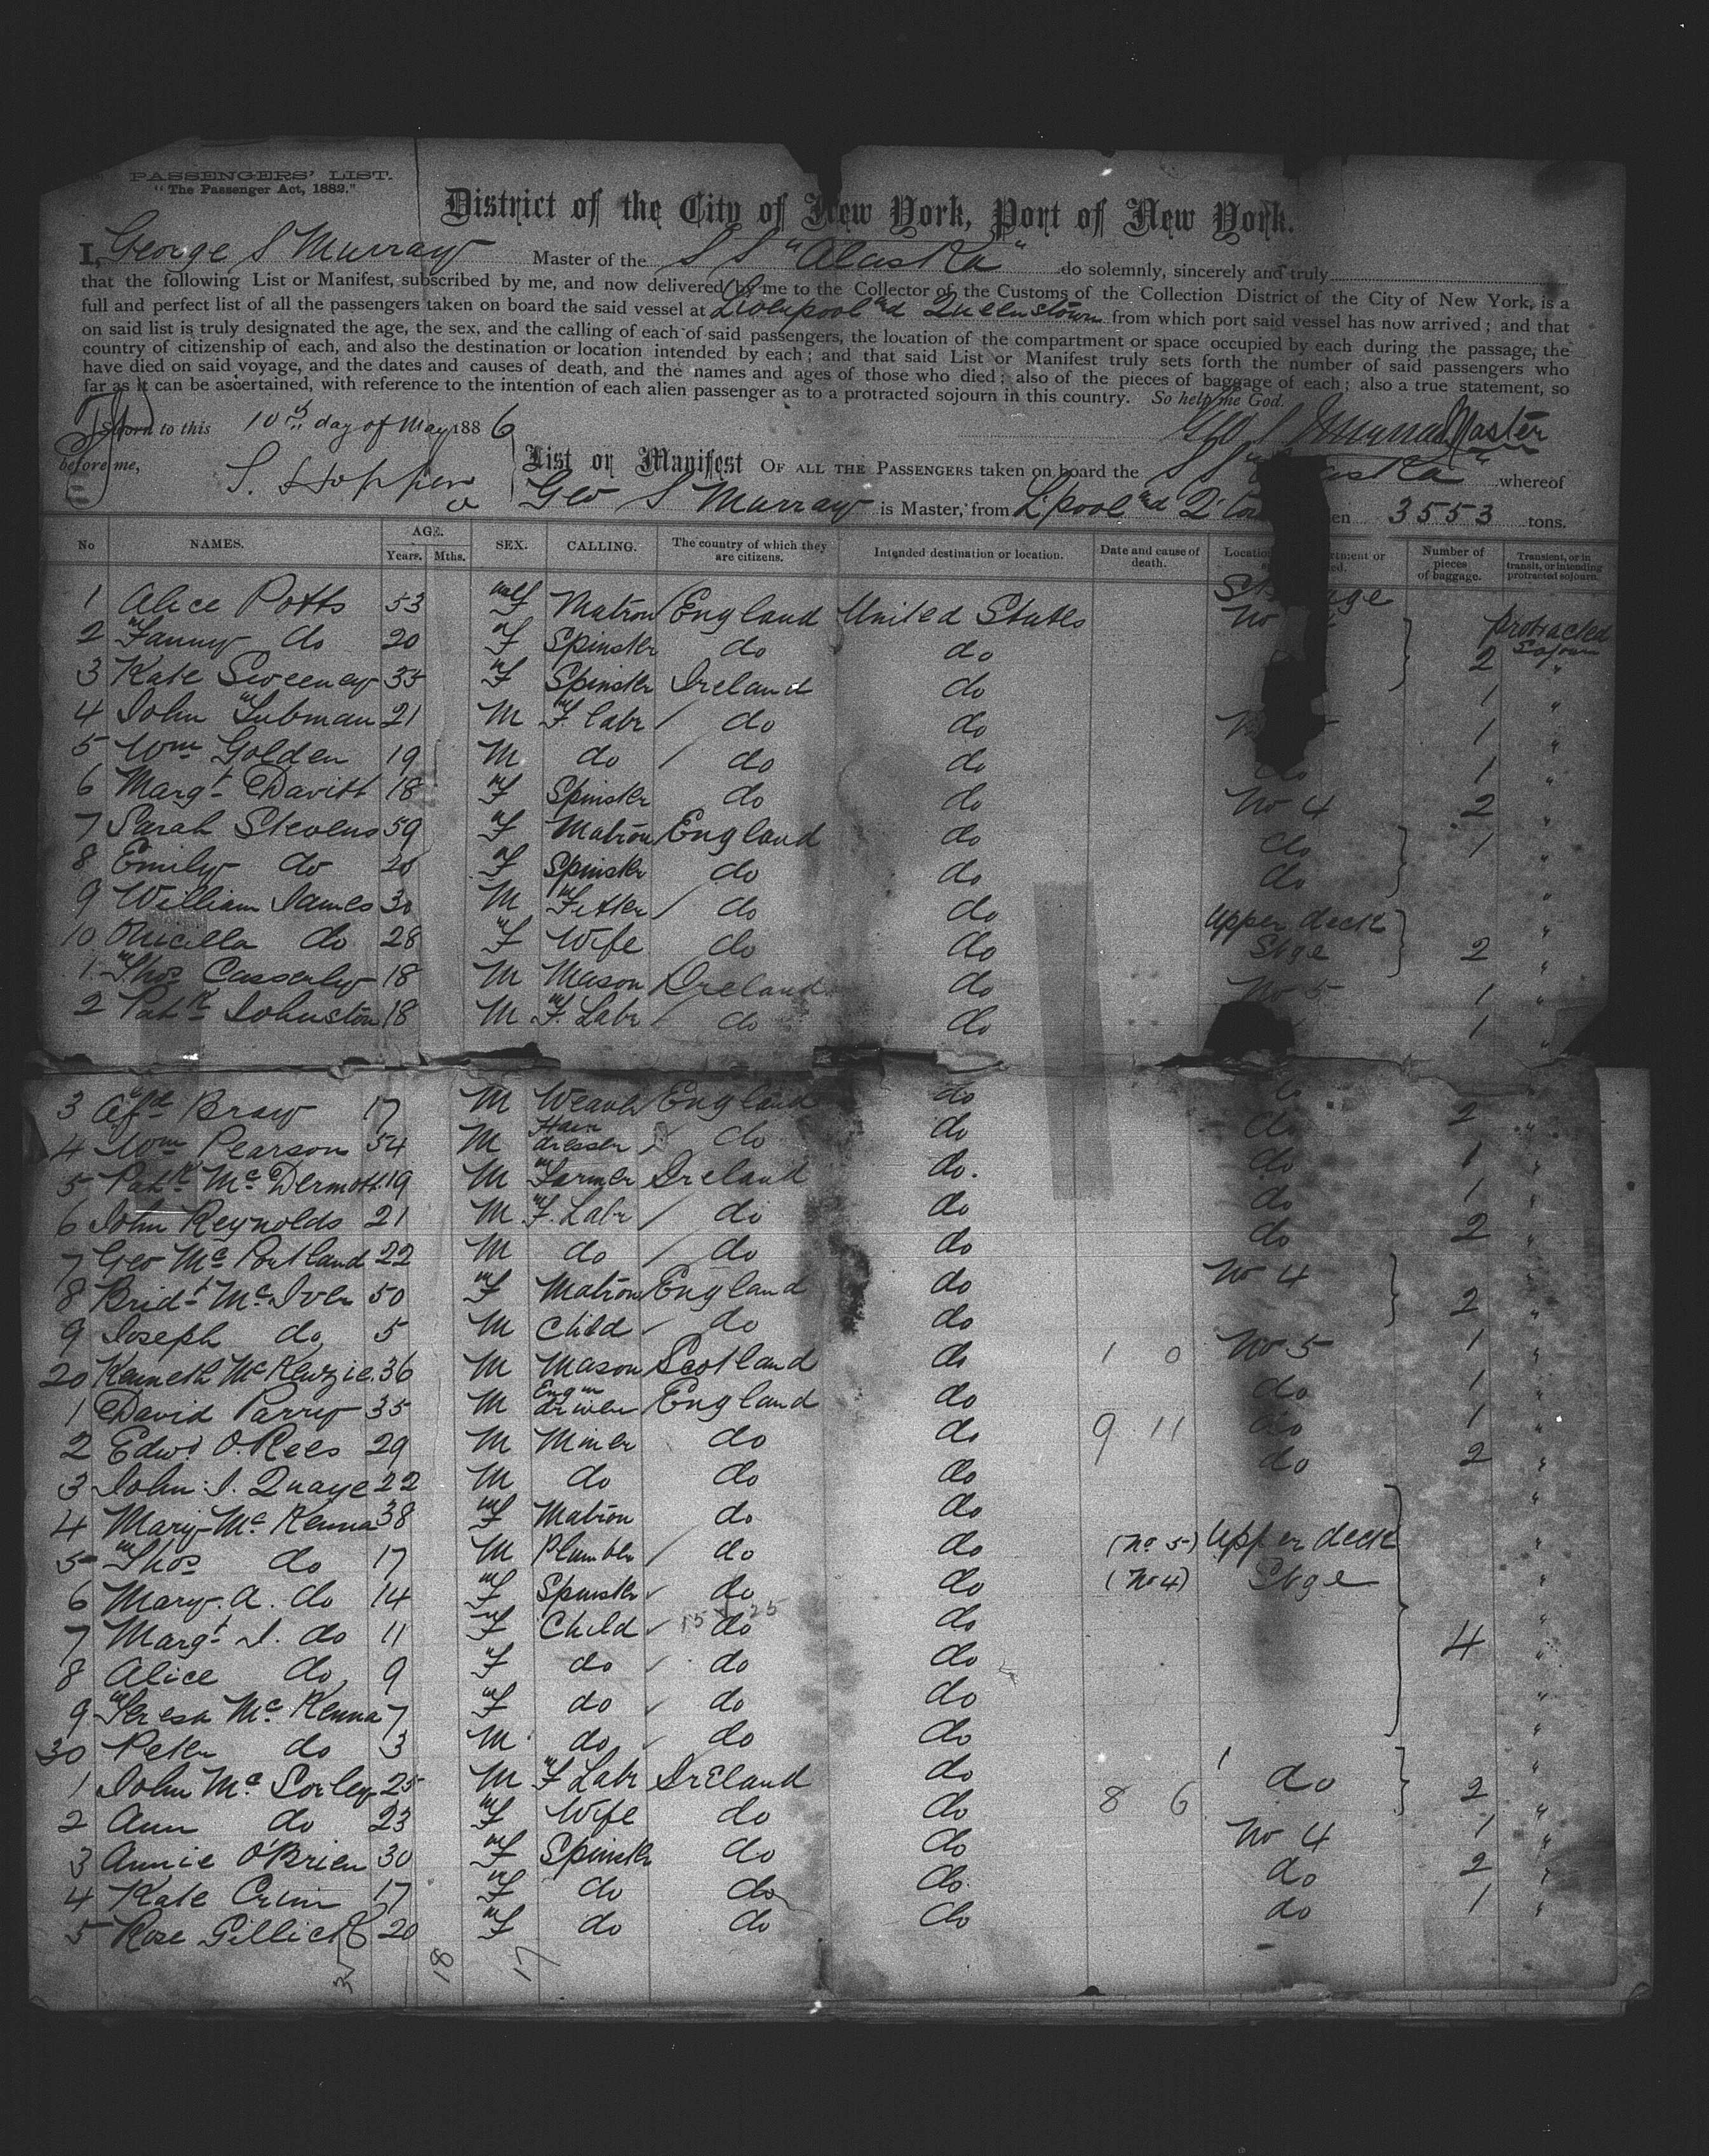 PASSENGERS' LIST.
"The Passenger Act, 1882."
District of the City of New York, Port of New York.
I, George S Murray Master of the S S "Alaska" do solemnly, sincerely and truly
that the following List or Manifest, subscribed by me, and now delivered by me to the Collector of the Customs of the Collection District of the City of New York, is a
full and perfect list of all the passengers taken on board the said vessel at Liverpool and Queenstown from which port said vessel has now arrived; and that
on said list is truly designated the age, the sex, and the calling of each of said passengers, the location of the compartment or space occupied by each during the passage, the
country of citizenship of each, and also the destination or location intended by each; and that said List or Manifest truly sets forth the number of said passengers who
have died on said voyage, and the dates and causes of death, and the names and ages of those who died; also of the pieces of baggage of each; also a true statement, so
far as it can be ascertained, with reference to the intention of each alien passenger as to a protracted sojourn in this country. So help me God.
Sworn to this 10th day of May 1886 Geo S Murray Master
before me, List or Manifest OF ALL THE PASSENGERS taken on board the S S "Alaska" whereof
Geo S Murray is Master, from L'pool and Q' 3553 tons.
No NAMES. AGE. Years. Mths. SEX. CALLING. The country of which they are citizens. Intended destination or location. Date and cause of death. Number of pieces of baggage. Transient, or in transit, or intending protracted sojourn.
1 Alice Potts 53 F Matron England United States No
2 Fanny do 20 F Spinster do do 2 protracted Sojourn
3 Kate Sweeney 35 F Spinster Ireland do 1 "
4 John Lubman 21 M F. Labr / do do 1 "
5 Wm Golden 19 M do / do do do 1 "
6 Margt Davitt 18 F Spinster do do No 4 2 "
7 Sarah Stevens 59 F Matron England do do 1 "
8 Emily do 20 F Spinster do do do "
9 William James 30 M Fitter / do do Upper deck "
10 do 28 F Wife do do Stge 2 "
1 Thos Casserly 18 M Mason Ireland do No 5 1 "
2 Patk Johnston 18 M F. Labr / do do 1 "
3 Afd Bray 17 M Weaver England do do 2
4 Wm Pearson 54 M Hair dresser / do do do 1 "
5 Patk McDermott 19 M Farmer Ireland do. do 1 "
6 John Reynolds 21 M F. Labr / do do do 1 "
7 Geo McPortland 22 M do / do do do 2 "
8 Bridt McIver 50 F Matron England do No 4 2 "
9 Joseph do 5 M Child do do "
20 Kenneth McKenzie 36 M Mason Scotland do 1 0 No 5 1 "
1 David Parry 35 M Engin driver England do do 1 "
2 Edwd O. Rees 29 M Miner do do 9 11 do 1 "
3 John J. Quaye 22 M do do do do 2 "
4 Mary McKenna 38 F Matron do do "
5 Thos do 17 M Plumber / do do (No 5) Upper deck "
6 Mary. A. do 14 F Spinster do do (No 4) Stge "
7 Margt J. do 11 F Child do do 4 "
8 Alice do 9 F do do do "
9 Teresa McKenna 7 F do do do "
30 Peter do 3 M do do do "
1 John McSorley 25 M F Labr Ireland do 8 6 do 2 "
2 Ann do 23 F Wife do do "
3 Annie O'Brien 30 F Spinster do do No 4 1 "
4 Kate Crinn 17 F do do do do 2 "
5 Rose Gillick 20 F do do do do 1 "
18 17